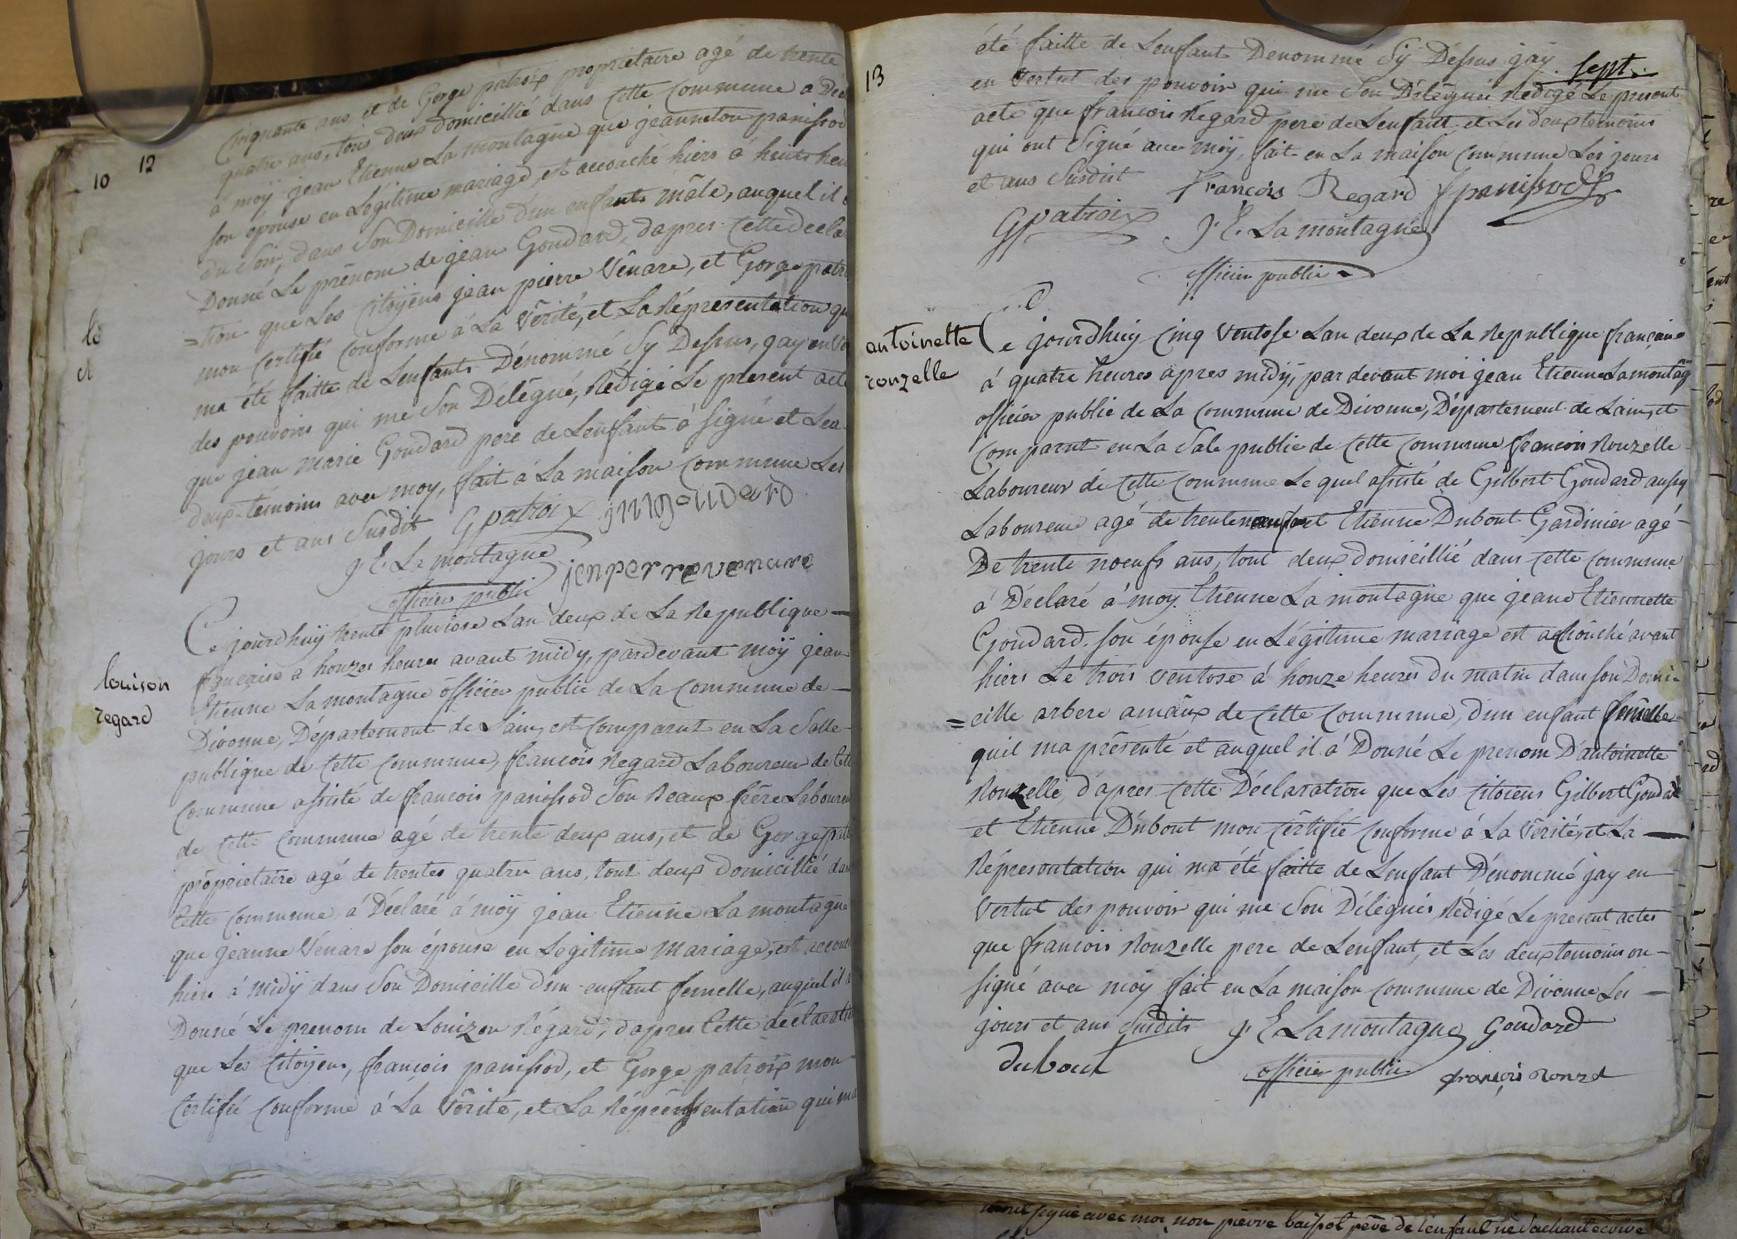 10 12
Cinquante ans et de Gorge patroix propriétaire agé de trente
quatre ans, tous deux domicillié dans cette commune a Déc
à moÿ jean Etienne La montagne que jeanneton panissod
son épouse en Légitime mariage, est accouché hiers à heuit heu
du soir, dans Son Domicille d'un enfants mâle, auquel il
Donné Le prénom de jean Goudard, dapres cette decla
=tion que Les Citoÿens jean pierre Vênare, et Gorge patr
mon Certifié conforme à La Vérité, et La Répresentation qu
ma été faitte de Lenfants Dénommé Sÿ Dessus, jay en Ve
des pouvoirs qui me Son Délégué, Rédigé Le présent acte
que jean Marie Goudard pere de Lenfants à signé et Les
deux temoins avec moy, fait à La maison Commune Les
jours et ans Susdit Gpatroix
J. E. La montagne jenperrevenare
officier public
le
et
louison
regard
Ce jourdhuÿ trente pluviose Lan deux de La Republique
française à honzes heures avant midy, pardevant moÿ jean
Etienne La montagne officier public de La Commune de
Divonne, Département de Lain, est Comparut en La Salle
publique de Cette Commune, francois Regard Laboureur de Cette
Commune assisté de francois panissod Son Beaux frère Laboureu
de Cette Commune agé de trente deux ans, et de Gorge patr
propriétaire agé de trentes quatre ans, tous deux Domicillié dans
Cette Commune à Déclaré à moÿ jean Etienne La montagne
que jeanne Vénare son épouse en Légitime Mariage, est accou
hiers à midÿ dans Son Domicille d'un enfant femelle, auquel il a
Donné Le prenom de Louizon Régard, dapres Cette déclaration
que Les Citoÿens, françois panissod, et Gorge patroix mon
Certifié Conforme à La Vérité, et La Répréssentation qui ma
13
sept.
été faitte de Lenfants Denommé Sÿ Dessus jaÿ
en Vertut des pouvoir qui me Son Délégués Rédigé Le présent
acte que francois Regard pere de Lenfantt, et Les deux temoins
qui ont Signé avec moÿ, fait en La maison Commune Les jours
et ans Susdit François Regard fpanissod
Gpatroix J. E. La montagne
officier public
antoinette
ronzelle
Ce jourdhuy Cinq Ventose Lan deux de La Republique française
à quatre heures apres midÿ, par devant moi jean Etienne Lamontag
officier public de La Commune de Divonne, Département de Lain, et
Comparut en La Sale public de Cette Commune francois Ronzelle
Laboureur de Cette Commune Le quel assisté de Gilbert Goudard aussy
Laboureur agé de trente Etienne Dubout Gardinier agé
De trente noeufs ans, tout deux domiseillié dans Cette Commune
à Déclaré à moy Etienne La montagne que jeane Etiennette
Goudard son épouse en Légitime mariage est acouché avant
hiers Le trois Ventose à honze heures du matin dans son Domi
=eille arbere de Cette Commune, d'un enfant femelle
quil ma présenté et auquel il à Donné Le prenom D'antoinette
Ronzelle d'apres Cette Déclaration que Les Citoiens Gilbert Goudar
et Etienne Dubout mon Certifié Conforme à La Vérité, et La
Répresontation qui ma été faitte de Lenfant Dénommé jay en
Vertut des pouvoir qui me Son Délégués Rédigé Le present actes
que francois Ronzelle pere de Lenfant, et Les deux temoins on
signé avec moy fait en La maison Commune de Divonne Les
jours et ans Susdits J. E. La montagne Goudard
dubout officier public françois
signé avec moi non pierre pére de l'enfant ne Sachant écrire